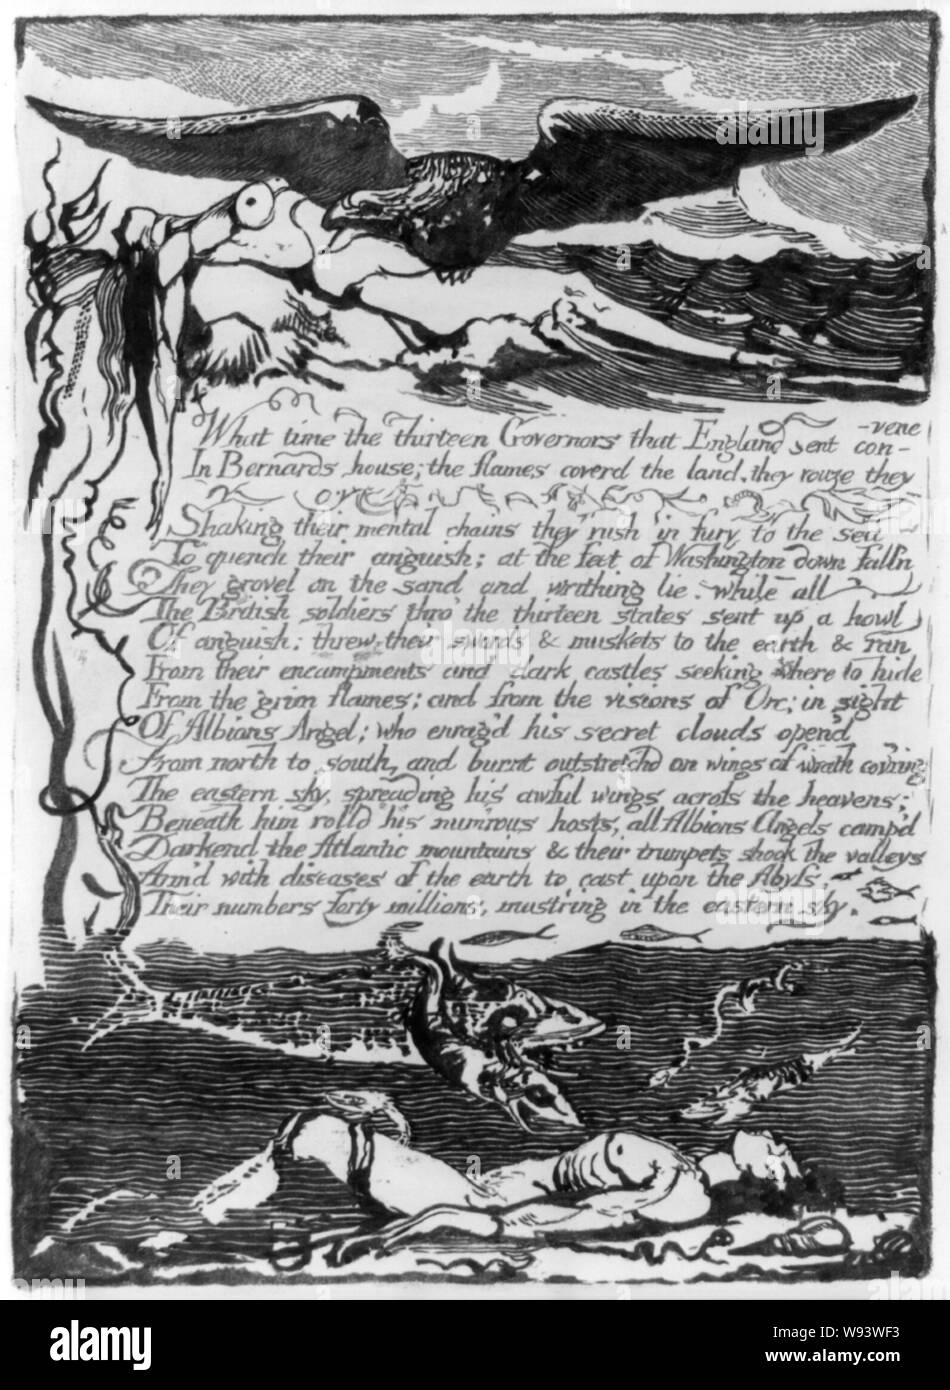 What time the thirteen Governors that England sent con-
-vene
In Bernards house; the flames coverd the land, they rouze they
cry
Shaking their mental chains they rush in fury to the sea
To quench their anguish; at the feet of Washington down fall'n
They grovel on the sand and writhing lie. while all
The British soldiers thro' the thirteen states sent up a howl
Of anguish: threw their swords & muskets to the earth & ran
From their encampments and dark castles seeking where to hide
From the grim flames; and from the visions of Orc; in sight
Of Albions Angel; who enrag'd his secret clouds open'd
From north to south, and burnt outstretchd on wings of wrath cov'ring
The eastern sky, spreading his awful wings across the heavens;
Beneath him rolld his num'rous hosts, all Albions Angels camp'd
Darkend the Atlantic mountains & their trumpets shook the valleys
Arm'd with diseases of the earth to cast upon the Abyss,
Their numbers forty millions, must'ring in the eastern sky.
alamy
Image ID: W93WF3
www.alamy.com